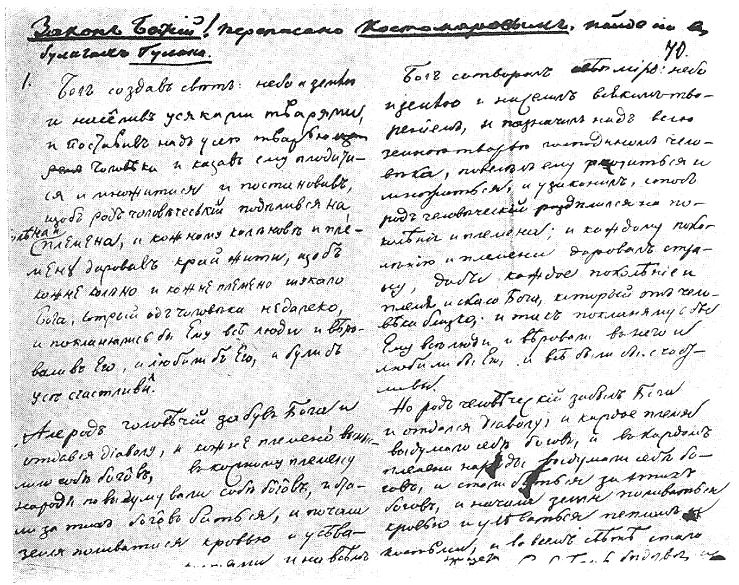 Законъ Божій! переписано Костомаровымъ, найдено въ
бумагахъ Гулака.
70.
1. Богъ создавъ свѣтъ: небо и землю
и населивъ усякими тварями,
и поставивъ надъ усею тварью
человѣка и казавъ ему плодити-
ся и множитися и постановивъ,
щобъ родъ человѣческій подѣлився на
колѣна и
племена, и кожному колѣнови и пле-
мену даровавъ край жити, щобъ
кожне колѣно и кожне племено шукало
Бога, котрый одъ человѣка недалеко,
и покланялись бы Ему всѣ люди и вѣро-
вали въ Его, и любили бъ Его, и були бъ
усѣ счастливи.
Але родъ человѣчій забувъ Бога и
отдався діаволу, а кожне племено
ло собѣ богôвъ, въ кожному племену
народы повыдумували собѣ богôвъ, и ста-
ли за тихъ богôвъ биться, и почала
земля поливатися кровью и усѣва-
тися костями и на всѣмъ
Богъ сотворилъ міръ: небо
и землю и населилъ всякимъ тво-
реніемъ, и назначилъ надъ всею
земною тварью господиномъ чело-
вѣка, повелѣлъ ему родиться и
множиться, и узаконилъ, чтобъ
родъ человѣческій раздѣлился на по-
колѣнія и племена; и каждому поко-
лѣнію и племени даровалъ стра-
ну, дабы каждое поколѣніе и
племя искало Бога, который отъ чело-
вѣка близъ, и такъ поклонялись бы
Ему всѣ люди и вѣровали въ него и
любили бы Его, и всѣ были бы счаст-
ливы.
Но родъ человѣческій забылъ Бога
и отдался діаволу, и каждое племя
выдумало себѣ боговъ, и въ каждомъ
племени народы выдумали себѣ бо-
говъ, и стали биться за этихъ
боговъ, и начала земля поливаться
кровью и усѣваться пепломъ и
костями, и во всемъ свѣтѣ стало